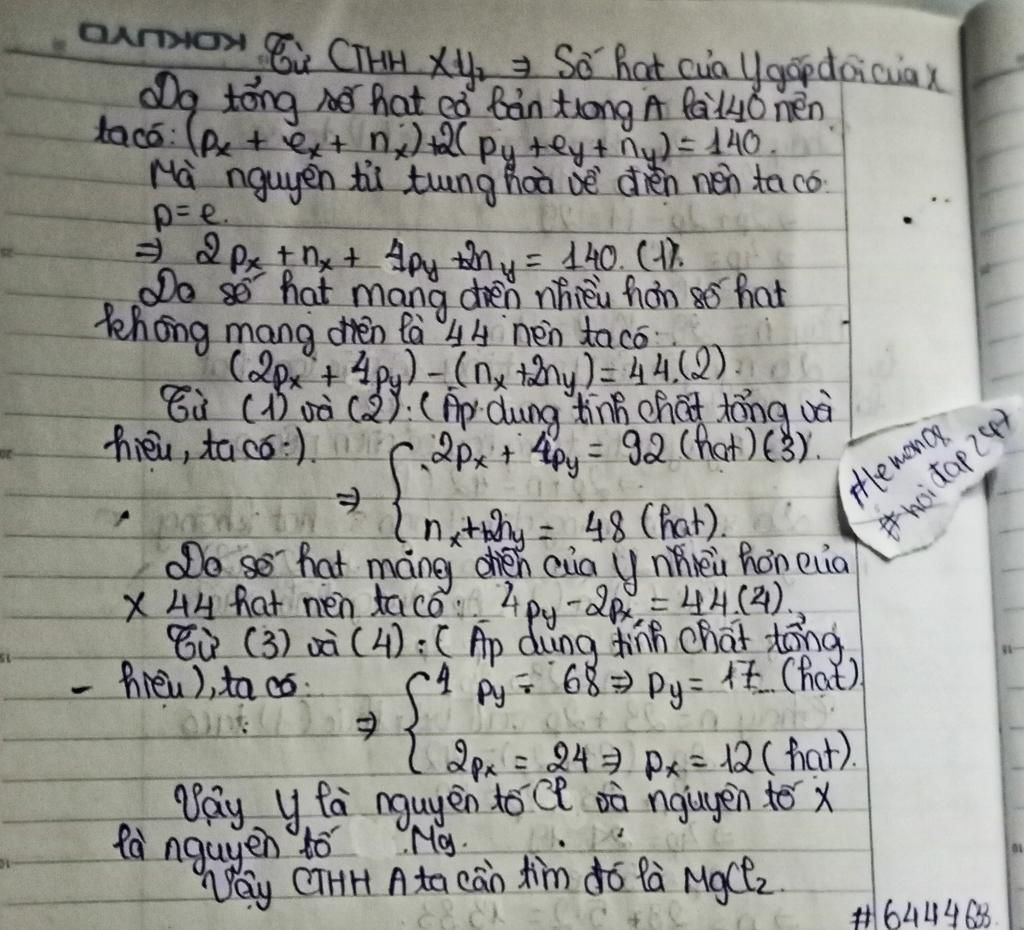 KOKUYO
Từ CTHH XY₂ ⇒ Số hạt của Y gấp đôi của X
Do tổng số hạt cơ bản trong A là 140 nên
ta có: (pₓ + eₓ + nₓ) + 2(py + ey + ny) = 140.
Mà nguyên tử trung hoà về điện nên ta có:
p = e.
⇒ 2pₓ + nₓ + 4py + 2ny = 140. (1).
Do số hạt mang điện nhiều hơn số hạt
không mang điện là 44 nên ta có:
(2pₓ + 4py) - (nₓ + 2ny) = 44. (2).
Từ (1) và (2): (Áp dụng tính chất tổng và
hiệu, ta có:)
2pₓ + 4py = 92 (hạt) (3).
⇒ {
nₓ + 2ny = 48 (hạt).
Do số hạt mang điện của Y nhiều hơn của
X 44 hạt nên ta có: 4py - 2pₓ = 44. (4).
Từ (3) và (4): ( Áp dụng tính chất tổng
- hiệu), ta có:
4 py = 68 ⇒ py = 17 (hạt)
⇒ {
2pₓ = 24 ⇒ pₓ = 12 (hạt).
Vậy Y là nguyên tố Cl và nguyên tố X
là nguyên tố Mg.
Vậy CTHH A ta cần tìm đó là MgCl₂.
#lemon08
#hoidap247